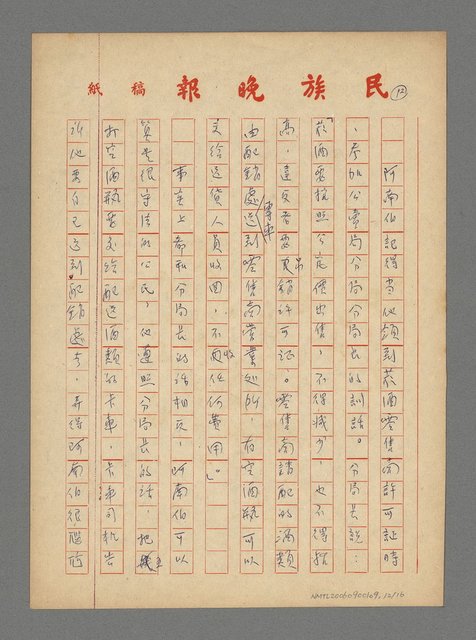 民族晚報稿紙
12
阿南伯記得当他領到菸酒零售商許可証時
，参加公賣局分局分局長的訓話。分局長說：
「菸酒要按照公定價出售，不得減少，也不得抬
高，違反者要吊銷許可証。零售商請配的酒類
由配銷處專車送到零售商營業処所，而空酒瓶可以
交給送貨人員收回，不收任何費用。」
事实上卻和分局長的話相反，阿南伯可以
算是很守法的公民，他遵照分局長的話，把
打空酒瓶要交給配送酒類的卡車，卡車司机告
訴他要自己送到配銷處去，弄得阿南伯很尷尬
NMTL20060900169, 12/16